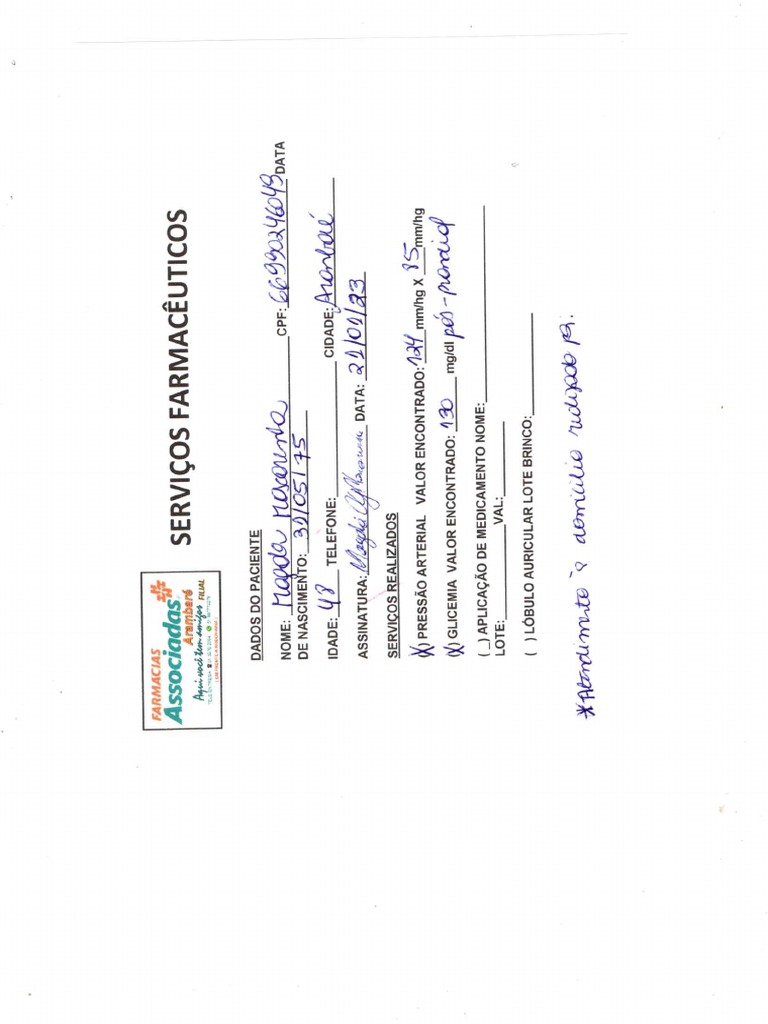 FARMACIAS
Associadas
Arambaré
Aqui você tem amigos FILIAL
SERVIÇOS FARMACÊUTICOS
DADOS DO PACIENTE
NOME: Magda CPF: 66990246049 DATA
DE NASCIMENTO: 31/05/75
IDADE: 48 TELEFONE: CIDADE: Arambaé
ASSINATURA: Magda DATA: 21/01/23
SERVIÇOS REALIZADOS
(X) PRESSÃO ARTERIAL VALOR ENCONTRADO: 124 mm/hg X 85 mm/hg
(X) GLICEMIA VALOR ENCONTRADO: 130 mg/dl pós-prandial
(_) APLICAÇÃO DE MEDICAMENTO NOME:
LOTE: VAL:
( ) LÓBULO AURICULAR LOTE BRINCO:
*Atendimento à domicílio